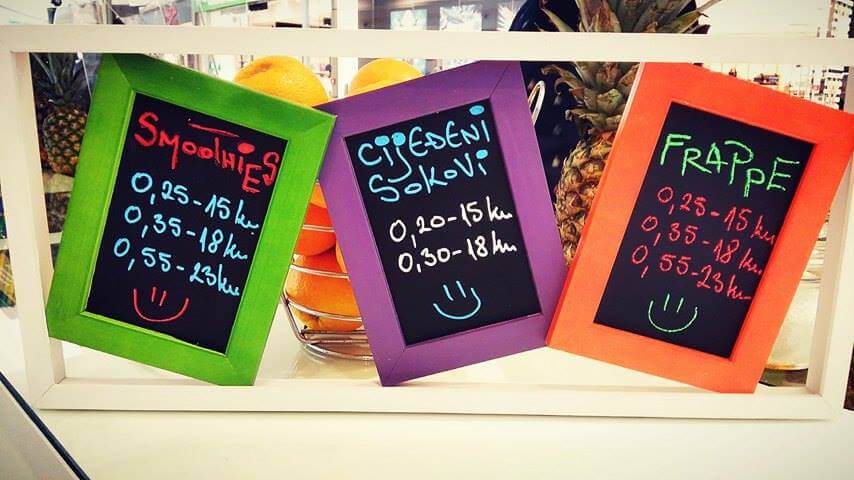 SMOOTHIES
0,25-15 ku
0,35-18 ku
0,55-23 ku
CIJEĐENI
SOKOVI
0,20-15 ku
0,30-18 ku
FRAPPE
0,25-15 ku
0,35-18 ku
0,55-23 ku